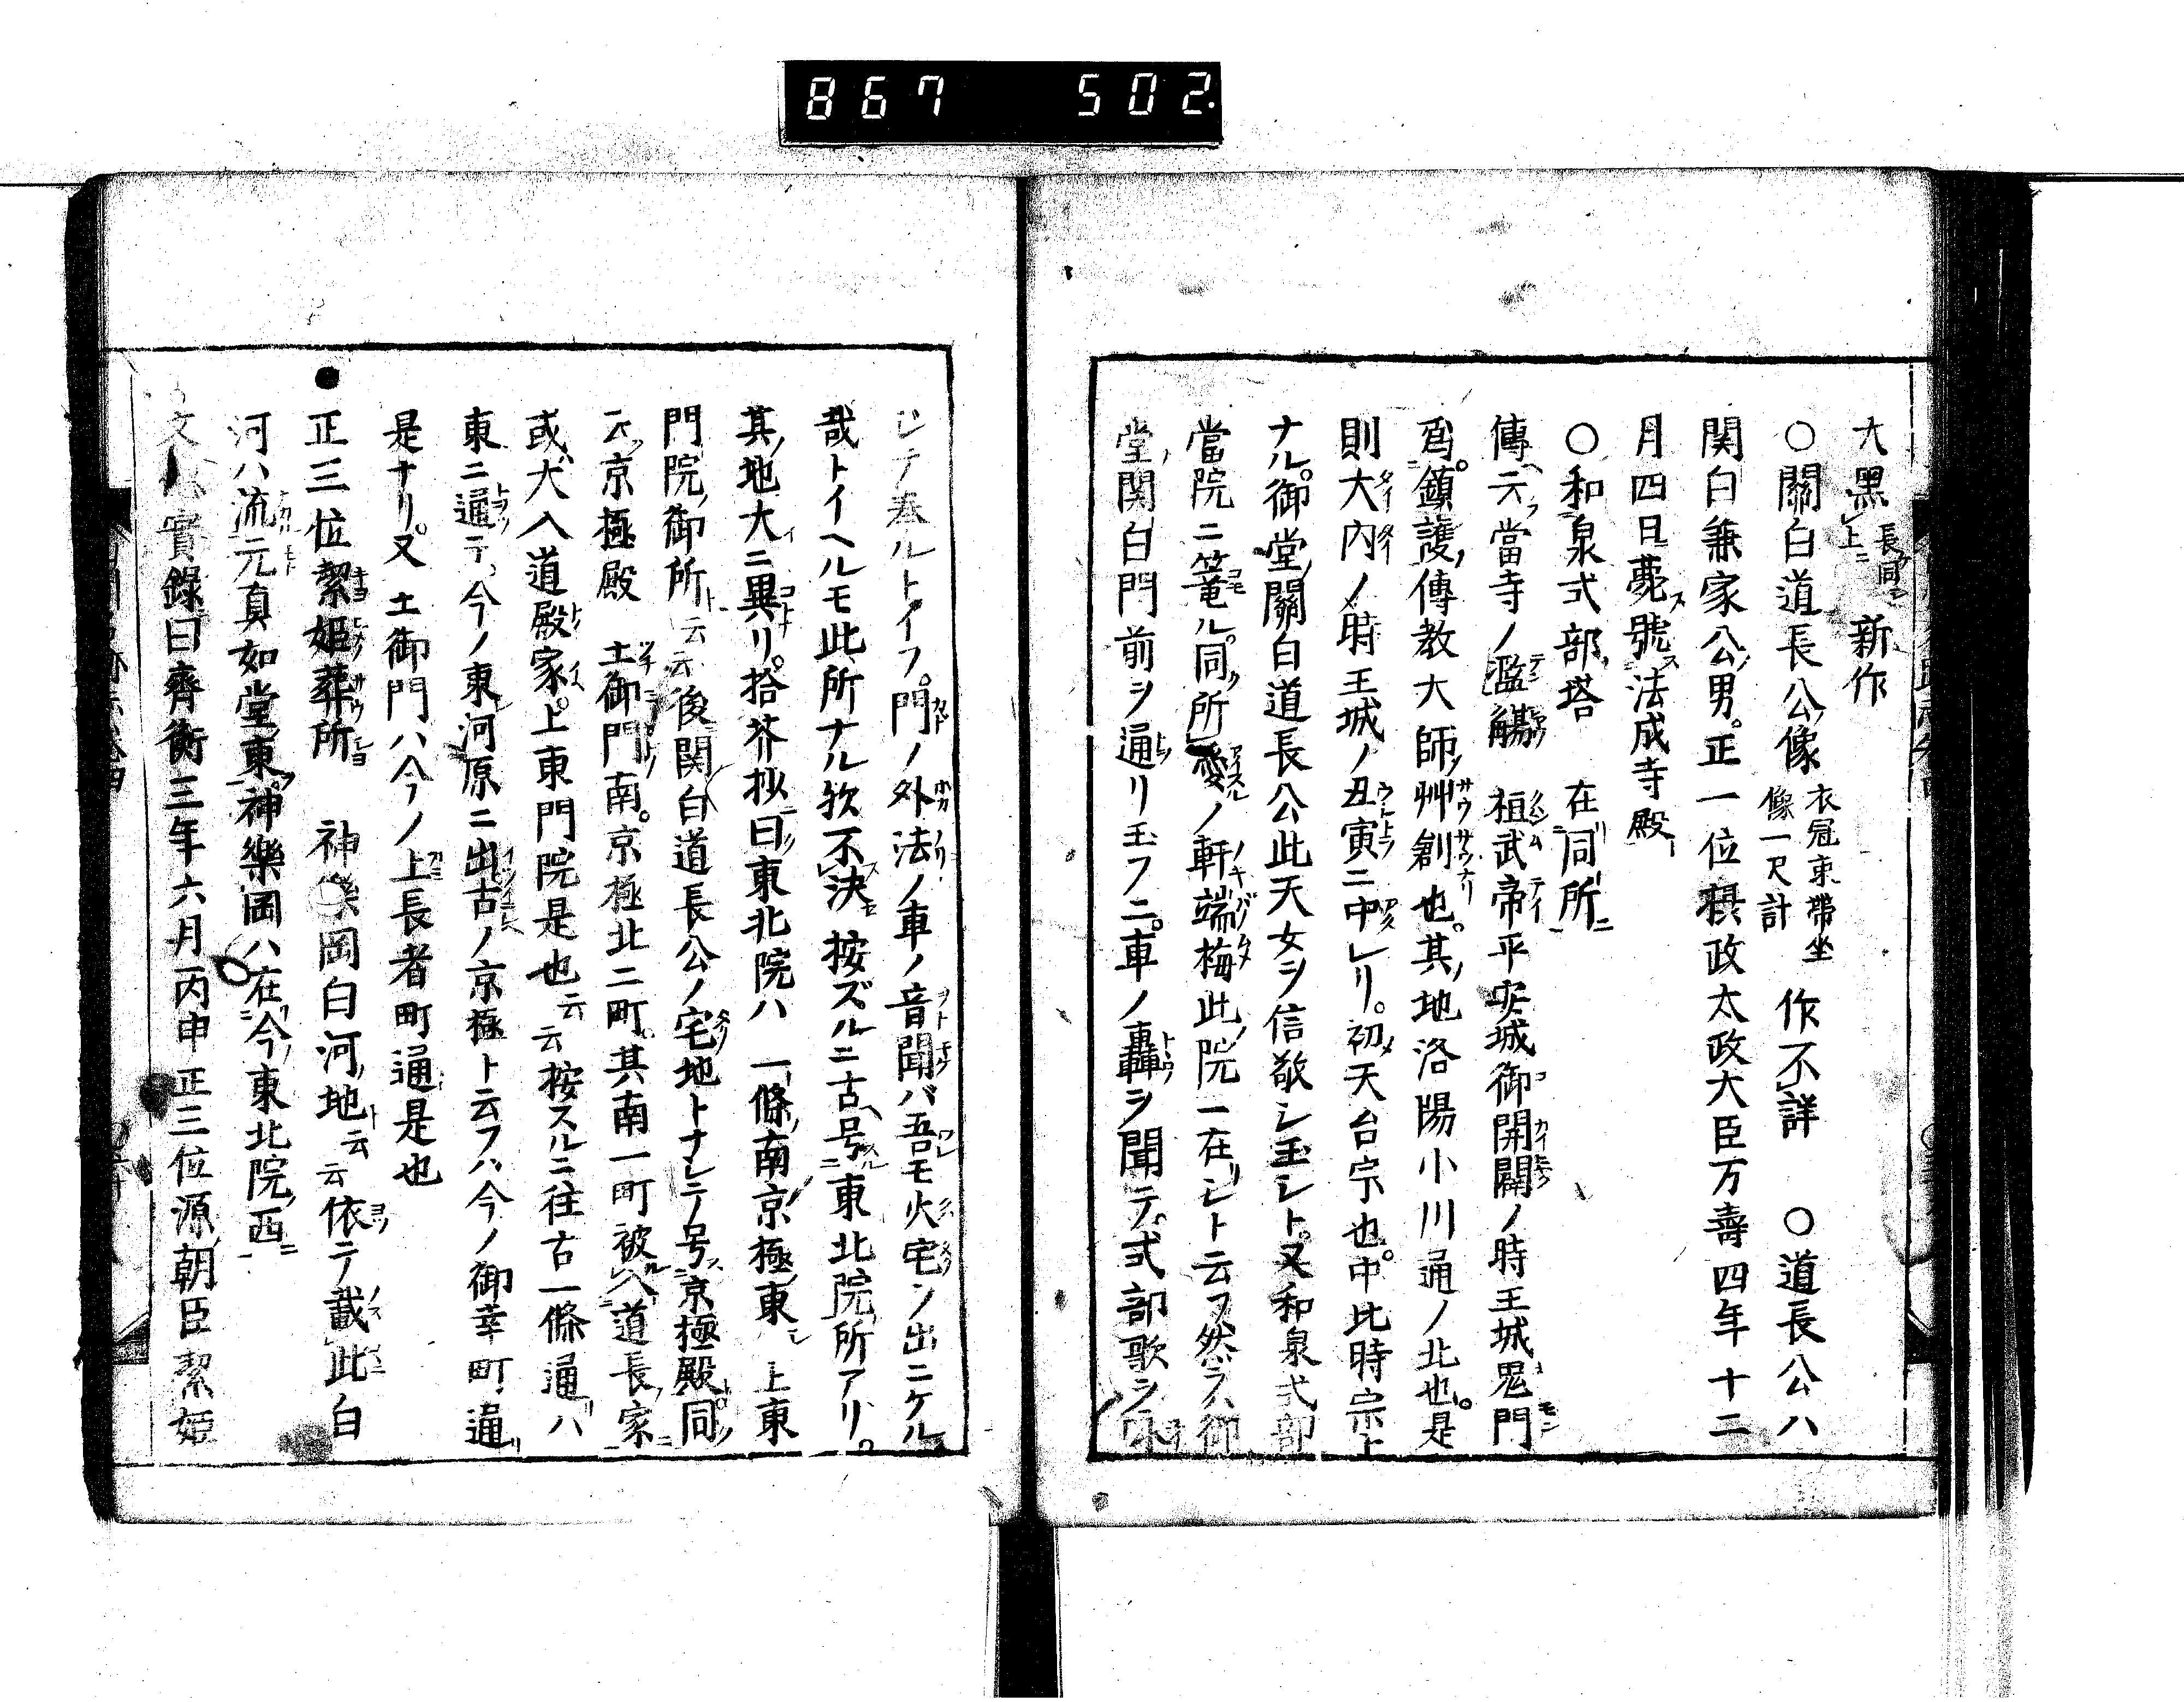 867 502
大黒 長同上ニ 新作
○關白道長公像 衣冠束帶坐像一尺計 作不詳 ○道長公ハ
関白兼家公ノ男。正一位摂政太政大臣万壽四年十二
月四日薨ス號ス法成寺殿
○和泉式部塔 在同所ニ
傳ヘ云フ當寺ノ濫觴 桓武帝平安城御開闢ノ時王城鬼門
ノ鎮護傳教大師ノ艸創也。其ノ地洛陽小川通ノ北也。是
則大内ノ時王城ノ丑寅ニ中レリ。初メ天台宗也。中比時宗ト
ナル。御堂ノ關白道長公此天女ヲ信敬シ玉シト。又和泉式部
當院ニ篭ル。同所愛ノ軒端梅此ノ院ニ在リシト云フ然ラハ御
堂ノ関白門前ヲ通リ玉フニ。車ノ轟ヲ聞テ。式部歌ヲ
シテ奉ルトイフ。門ノ外法ノ車ノ音聞バ吾モ火宅ヲ出ニケル
哉トイヘルモ此所ナル欤不決 按ズルニ古ヘ号東北院所アリ。
其ノ地大ニ異リ。拾芥抄曰東北院ハ 一條南京極東 上東
門院ノ御所ト云云後関白道長公ノ宅地トナシテ号京極殿同
云京極殿 土御門南。京極北二町。其南一町被入道長家
或ハ犬入道殿家。上東門院是也云云按スルニ往古一條通ハ
東ニ通テ今ノ東河原ニ出古ノ京極ト云フハ今ノ御幸町通
是ナリ。又土御門ハ今ノ上長者町通是也
●正三位絜姫葬所 神樂岡白河ノ地ト云云依テ載此白
河ハ流元真如堂東。神樂岡ハ在今ノ東北院ノ西ニ
文德實錄曰齊衡三年六月丙申正三位源朝臣絜姫